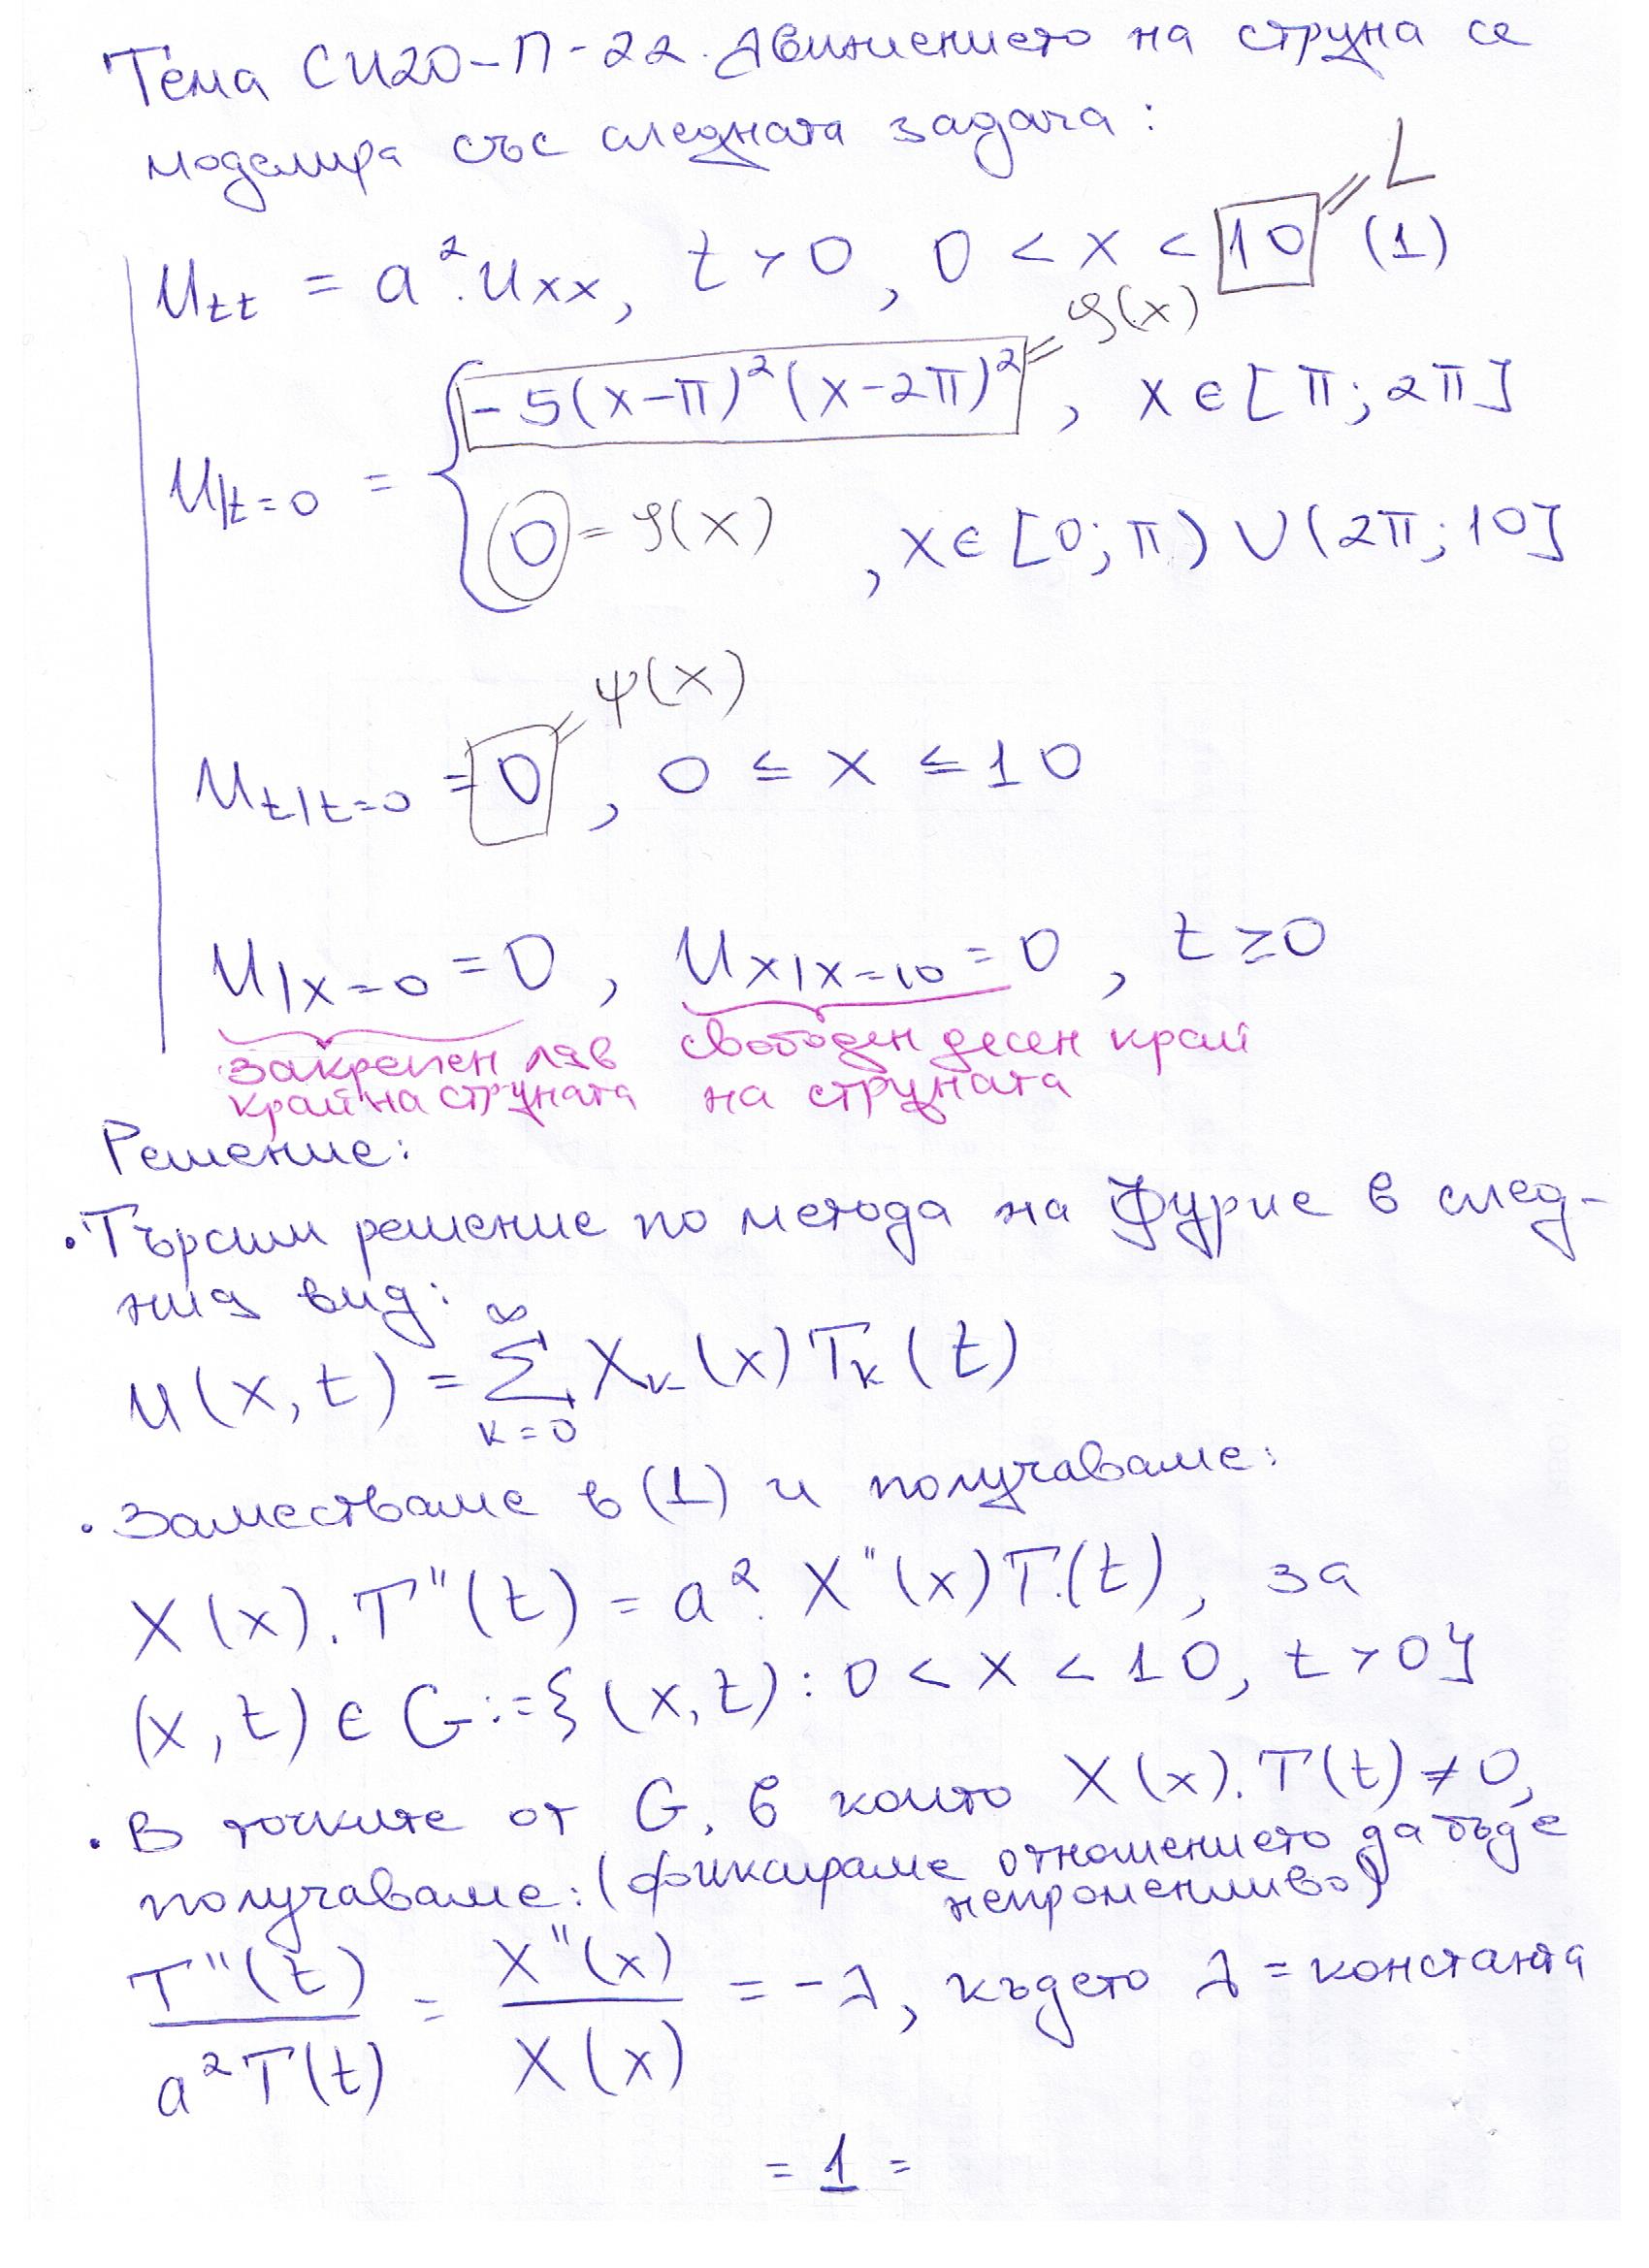 Тема СИ20-П-22. Движението на струна се
моделира със следната задача:
u_tt = a².u_xx, t > 0, 0 < x < 10 = L (1)
u|t=0 = { -5(x-π)²(x-2π)² = φ(x), x ∈ [π; 2π]
0 = φ(x), x ∈ [0; π) ∪ (2π; 10]
u_t|t=0 = 0 = ψ(x), 0 ≤ x ≤ 10
u|x=0 = 0, u_x|x=10 = 0, t ≥ 0
закрепен ляв свободен десен край
край на струната на струната
Решение:
• Търсим решение по метода на Фурие в след-
ния вид:
u(x,t) = ∑_{k=0}^{∞} X_k(x) T_k(t)
• Заместваме в (1) и получаваме:
X(x).T''(t) = a².X''(x)T(t), за
(x,t) ∈ G := {(x,t): 0 < x < 10, t > 0}
• В точките от G, в които X(x).T(t) ≠ 0,
получаваме: (фиксираме отношението да бъде
непроменливо)
T''(t)/a²T(t) = X''(x)/X(x) = -λ, където λ = константа
= 1 =